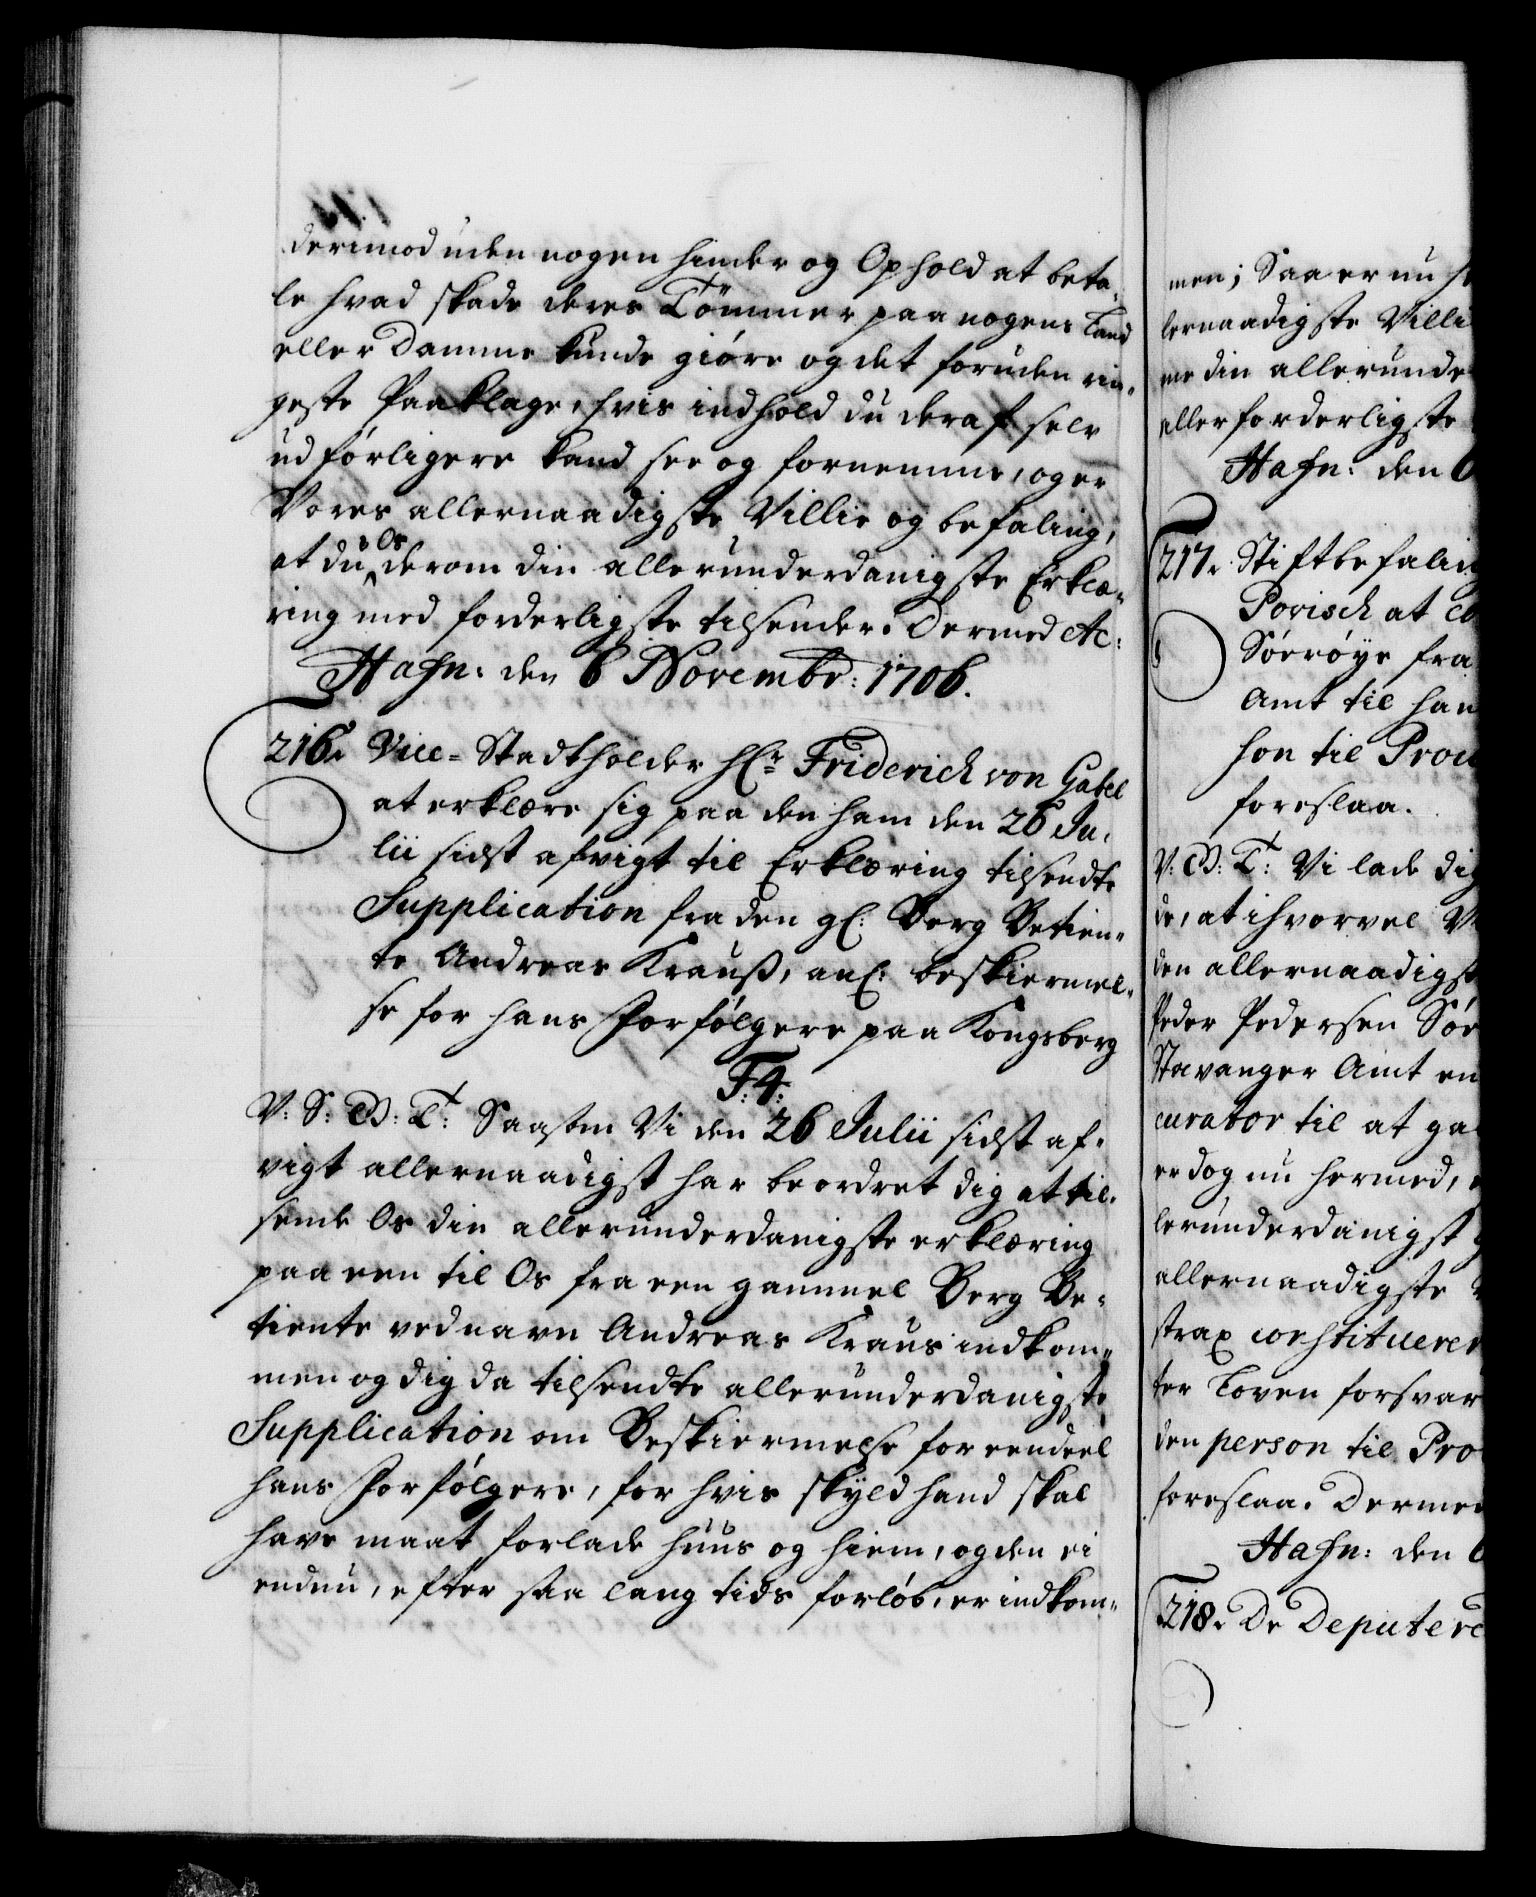 derimod uden nogen hinder og Ophold at beta-
le hvad skade deres Tömmer paa nogens Land
eller Damme kunde giøre og det foruden rin-
geste Paaklage, hvis indhold du deraf selv
udførligere kand see og fornemme, og er
Vores allernaadigste Villie og befaling,
at du Os derom din allerunderdanigste Erklæ-
ring med forderligste tilsender. Dermed etc:
Hafn: den 6 Novembr: 1706.
216. Vice-Stadtholder Hr: Friderich von Gabel
at erklære sig paa den ham den 26 Ju-
lii sidst afvigt til Erklæring tilsendte
Supplication fra den gl: Berg Betien-
te Andreas Krauß, anl: beskiermel-
se for hans Forfølgere paa Kongsberg
F: 4:
V: S: G: T: Saasom Vi den 26 Julii sidst af-
vigt allernaadigst har beordret dig at til-
sende Os din allerunderdanigste erklæring
paa een til Os fra een gammel Berg Be-
tiente ved navn Andreas Kraus indkom-
men og dig da tilsendte allerunderdanigste
Supplication om Beskiermelse for eendeel
hans Forfølgere, for hvis skyld hand skal
have maat forlade huus og hiem, og den ei
endnu, efter saa lang tids forløb, er indkom-
men; Saa er nu
lernaadigste Villi
me din allerunde
allerforderligste
Hafn: den 6
217. Stiftbefalin
Povisch at
Sørøye fra
Amt til han
hon til Procu
foreslaa.
V: G: T: Vi lade dig
de, at ihvorvel V
den allernaadigst
Peder Pedersen Sør
Stavanger Amt en
curator til at ga
er dog nu hermed,
lerunderdanigst
allernaadigste
strax constituerer
ter Loven forsvar
den person til Pro
foreslaa. Dermed
Hafn: den 6
218. De Deputere